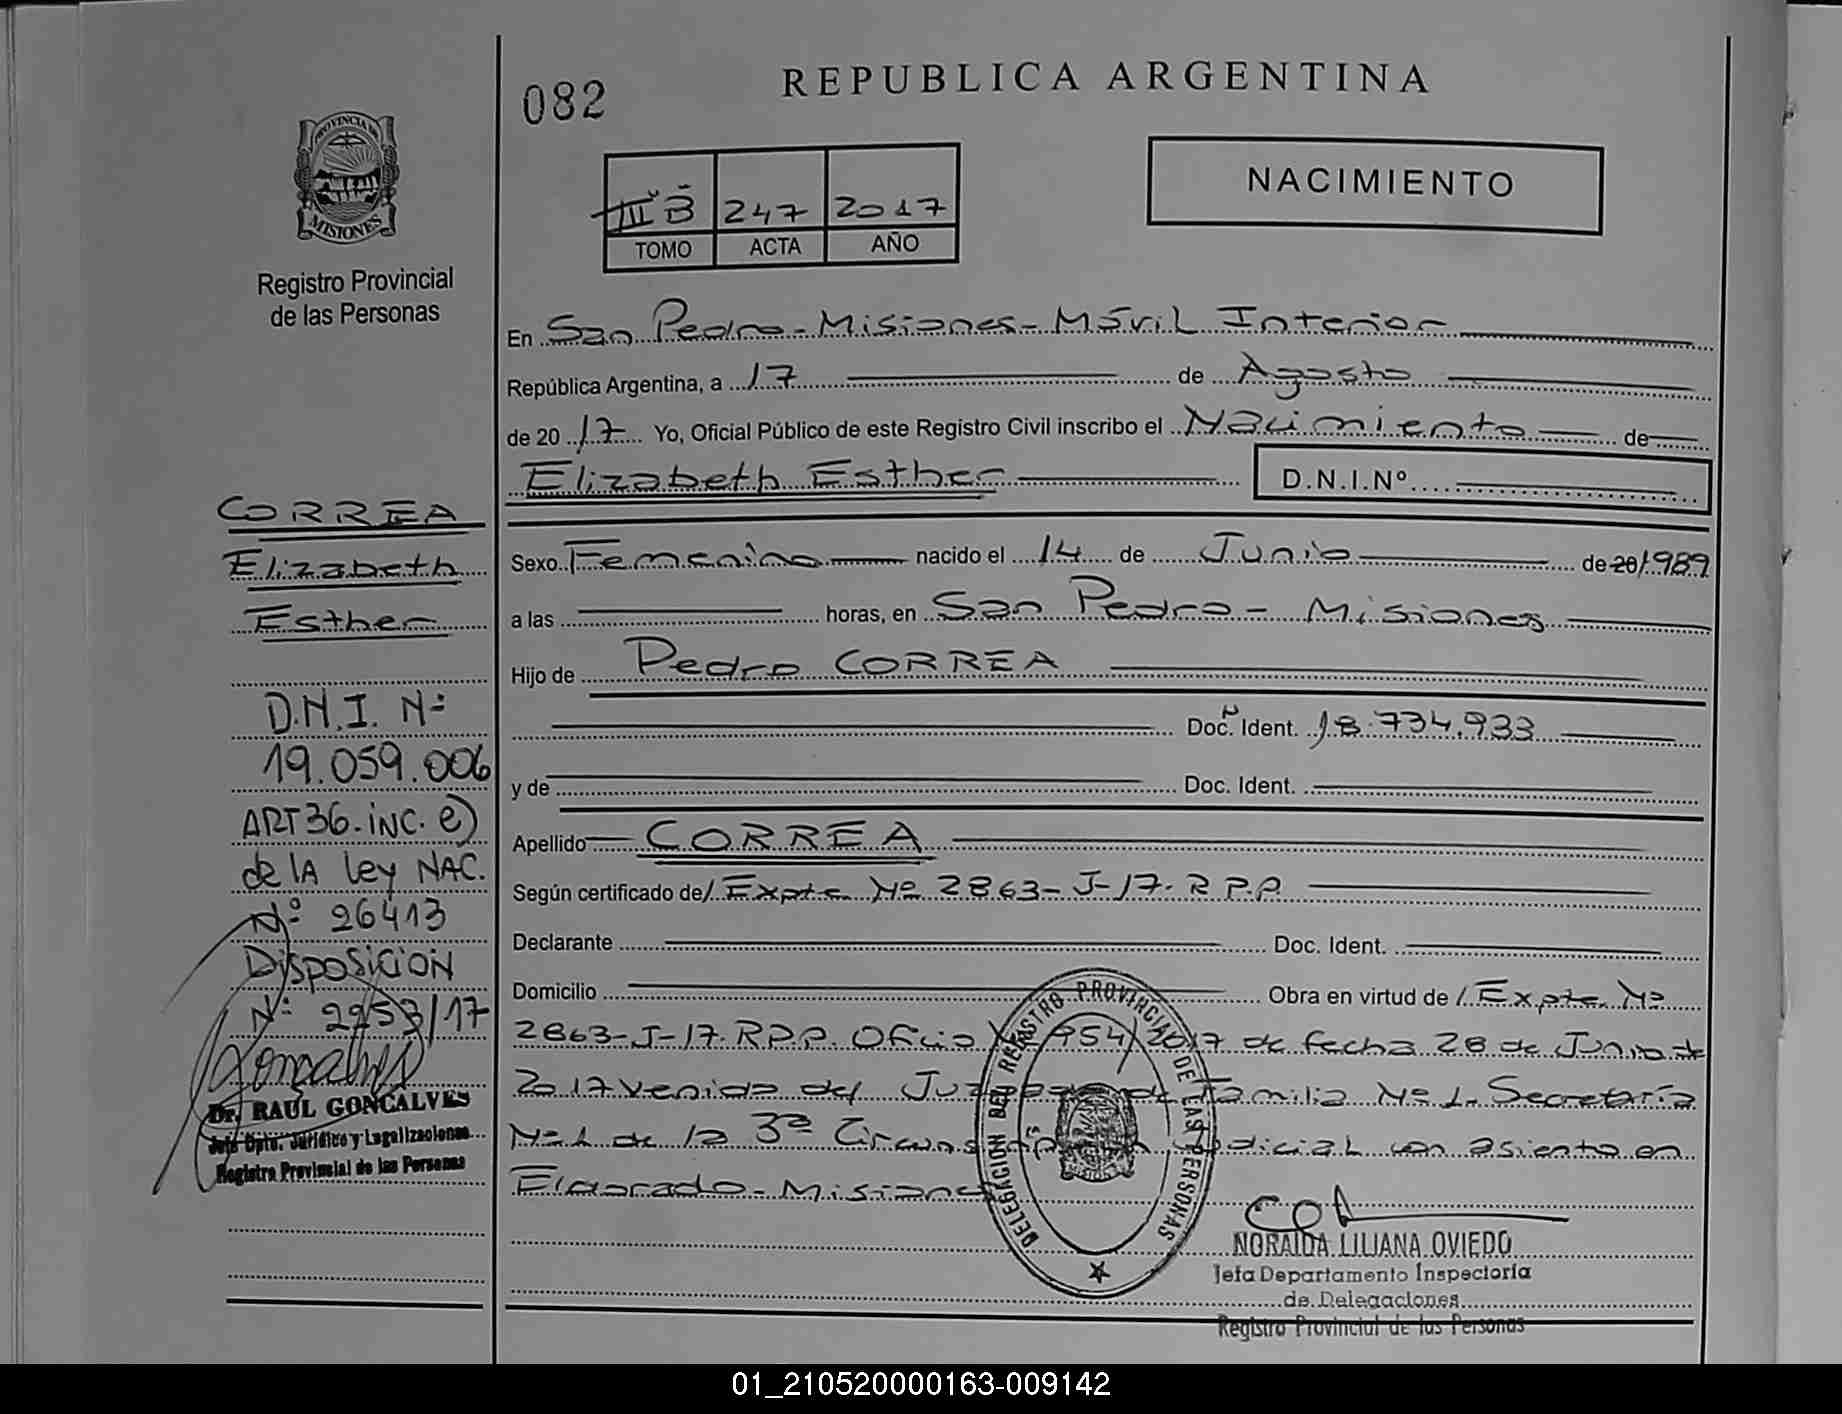 REPUBLICA ARGENTINA
082
NACIMIENTO
III B 247 2017
TOMO ACTA AÑO
PROVINCIA DE
MISIONES
Registro Provincial
de las Personas
En San Pedro - Misiones - Móvil Interior
República Argentina, a 17 de Agosto
de 20 17 Yo, Oficial Público de este Registro Civil inscribo el Nacimiento de
Elizabeth Esther D.N.I.Nº
Sexo Femenino nacido el 14 de Junio de 20/1989
a las horas, en San Pedro - Misiones
Hijo de Pedro CORREA
Doc. Ident. 18.734.933
y de Doc. Ident.
Apellido CORREA
Según certificado de/ Expte Nº 2863-J-17. R.P.P.
Declarante Doc. Ident.
Domicilio Obra en virtud de/ Expte. Nº
2863-J-17. R.P.P. Oficio 954/2017 de fecha 28 de Junio de
2017 venido del Juzgado de Familia Nº 1. Secretaría
Nº 1 de la 3ª Circunscripción Judicial con asiento en
Eldorado - Misiones
CORREA
Elizabeth
Esther
D.N.I. Nº
19.059.006
ART 36. inc. e)
de lA ley NAC.
Nº 26413
Disposición
Nº 2953/17
Goncalves
Dr. RAUL GONCALVES
Jefe Dpto. Jurídico y Legalizaciones
Registro Provincial de las Personas
DELEGACION DEL REGISTRO PROVINCIAL DE LAS PERSONAS
MISIONES
NORAIDA LILIANA OVIEDO
Jefa Departamento Inspectoría
de Delegaciones
Registro Provincial de las Personas
01_210520000163-009142